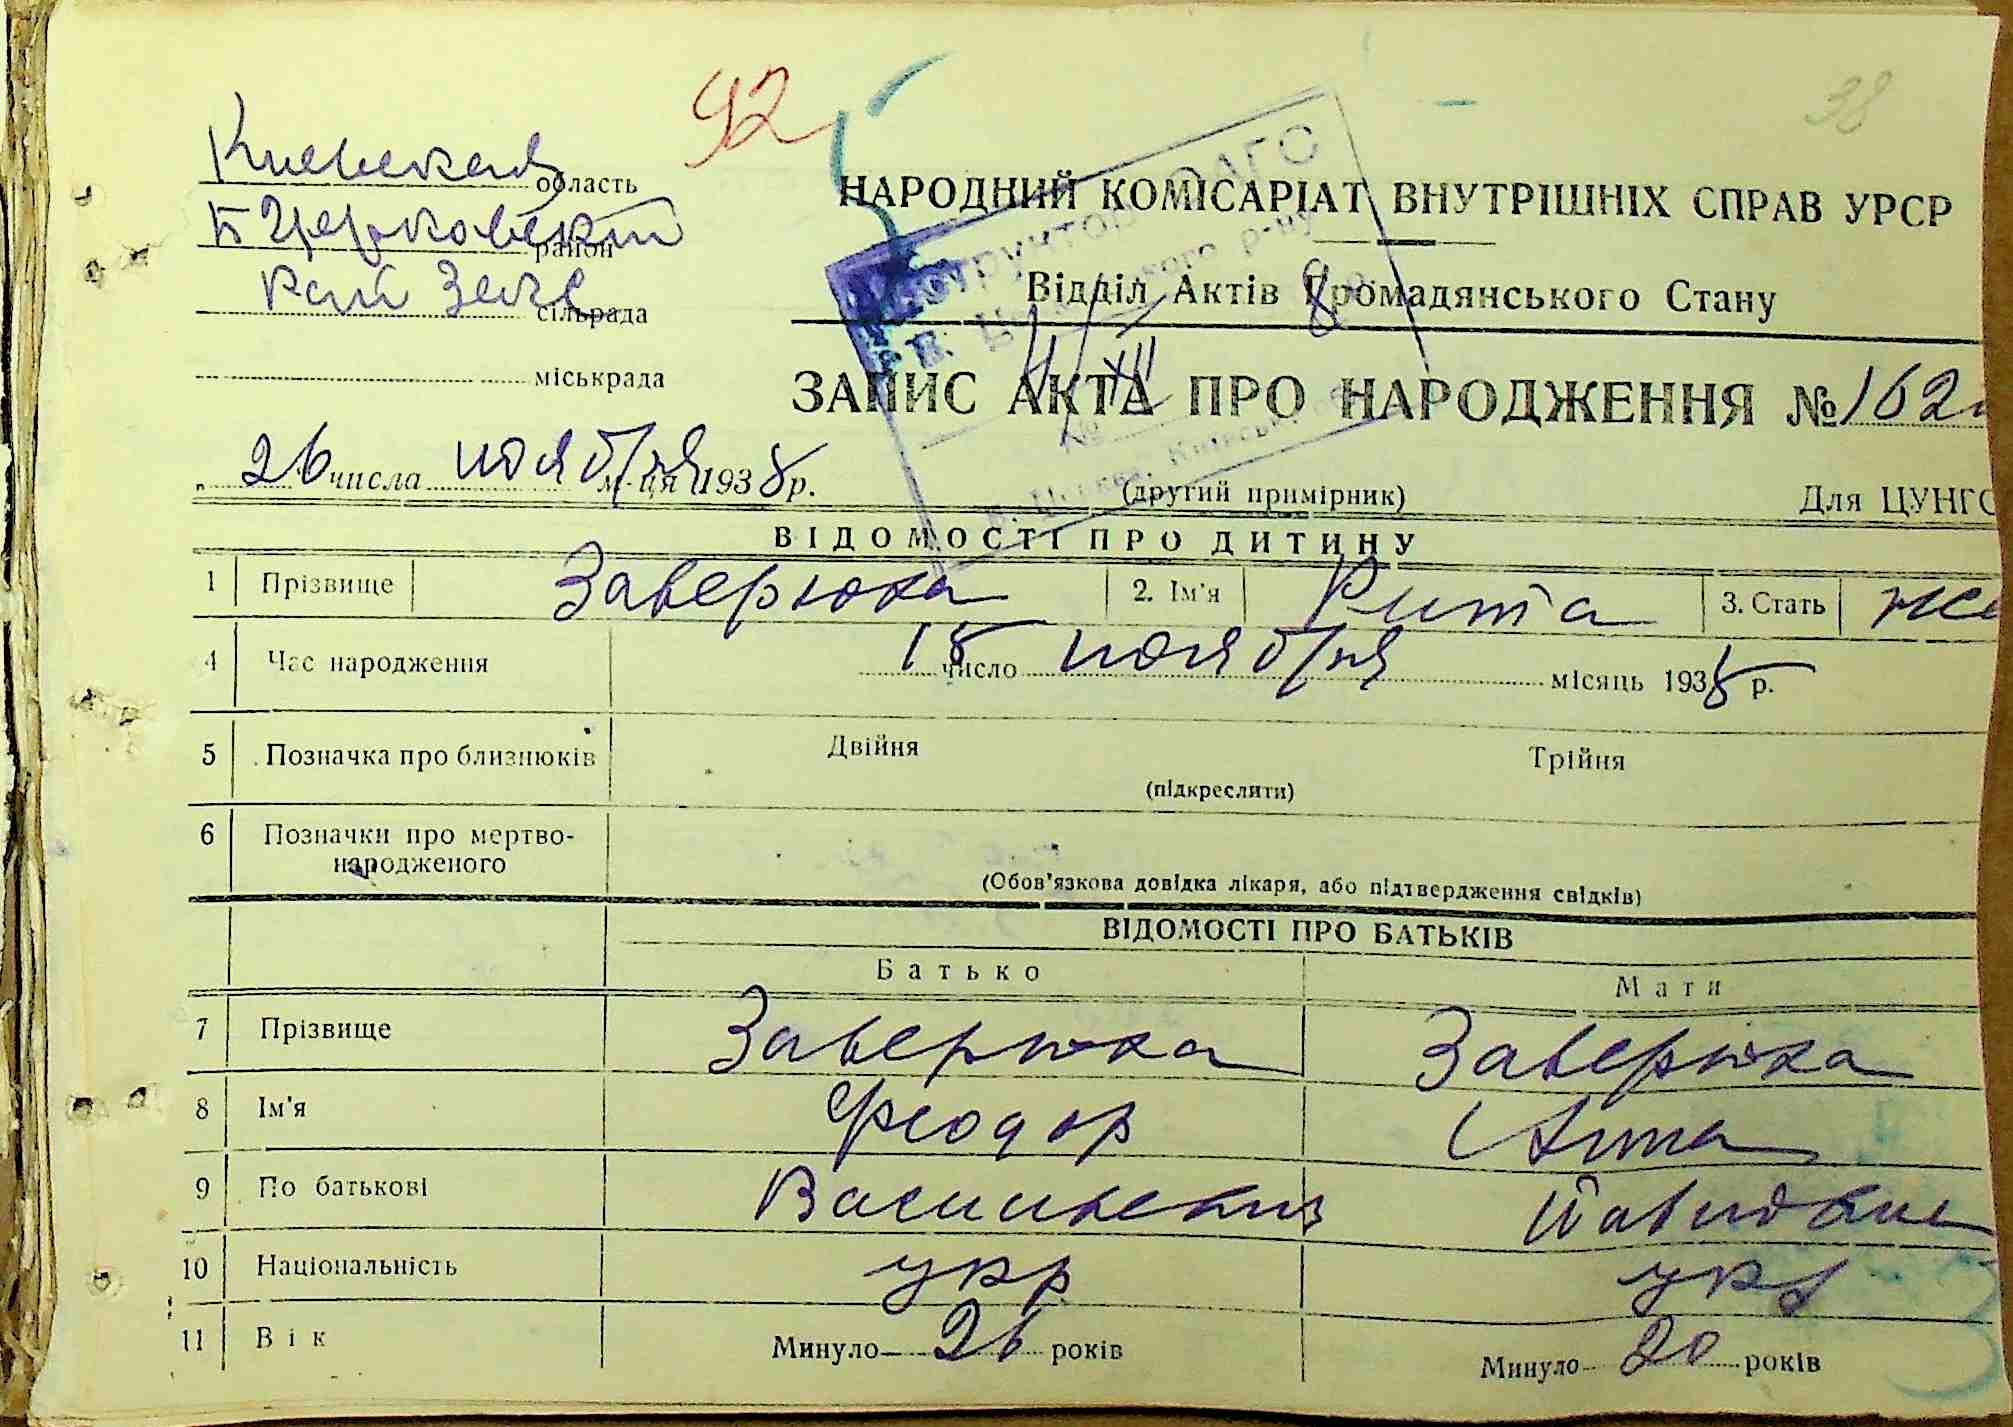 92
38
Киевская область
Б Церковский район
Рай Загс сільрада
міськрада
НАРОДНИЙ КОМІСАРІАТ ВНУТРІШНІХ СПРАВ УРСР
Відділ Актів Громадянського Стану
ЗАПИС АКТА ПРО НАРОДЖЕННЯ №162
„26 числа ноября м-ця 1938 р.
(другий примірник)
Для ЦУНГС
ВІДОМОСТІ ПРО ДИТИНУ
1 Прізвище Заверюха 2. Ім'я Рита 3. Стать же
4 Час народження 18 число ноября місяць 1938 р.
5 Позначка про близнюків Двійня Трійня
(підкреслити)
6 Позначки про мертво-
народженого
(Обов'язкова довідка лікаря, або підтвердження свідків)
ВІДОМОСТІ ПРО БАТЬКІВ
Батько Мати
7 Прізвище Заверюха Заверюха
8 Ім'я Феодор Анна
9 По батькові Васильевич
10 Національність укр укр
11 Вік Минуло 26 років Минуло 20 років